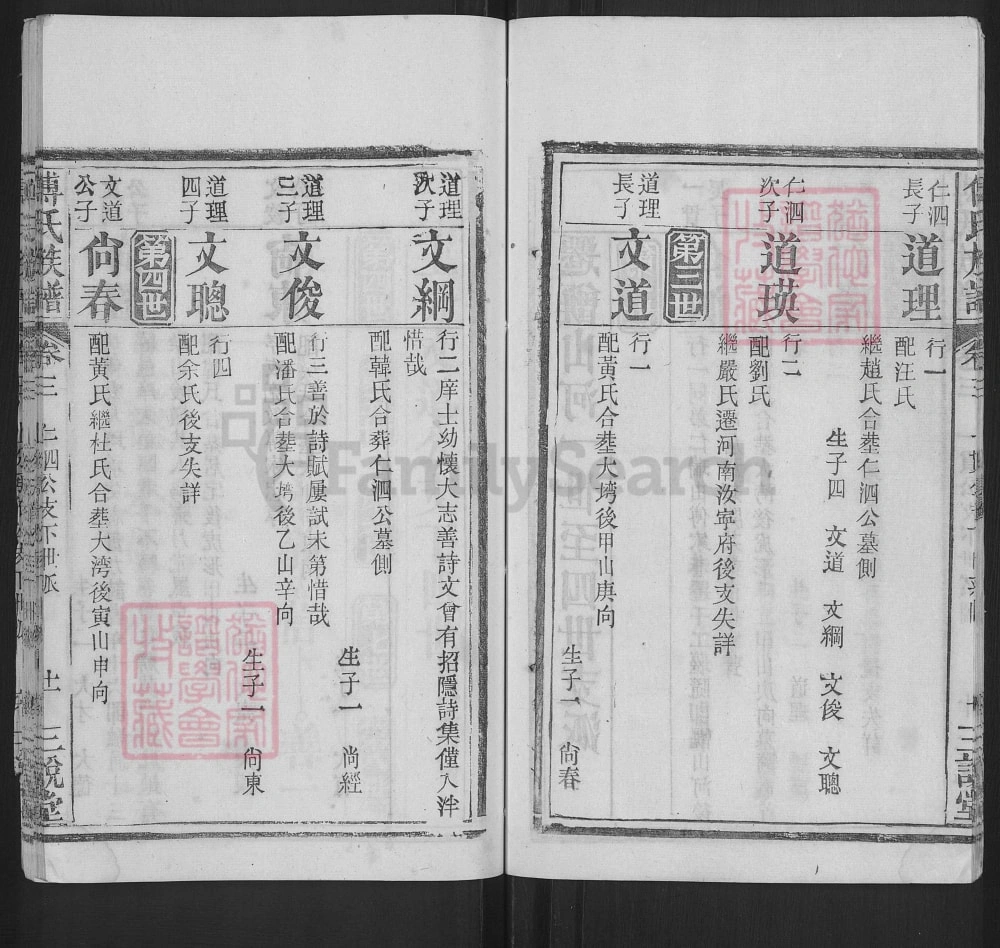 仁泗
長子
道理
行一
配汪氏
繼趙氏合塟仁泗公墓側
生子四 文道 文綱 文俊 文聰
仁泗
次子
道瑛
行二
配劉氏
繼嚴氏遷河南汝寧府後支失詳
第三世
道理
長子
文道
行一
配黃氏合塟大塆後甲山庚向
生子一 尙春
道理
次子
文綱
行二庠士幼懷大志善詩文曾有招隱詩集僅入泮
惜哉
配韓氏合葬仁泗公墓側
生子一 尙經
道理
三子
文俊
行三善於詩賦屢試未第惜哉
配潘氏合塟大塆後乙山辛向
生子一 尙東
道理
四子
文聰
行四
配余氏後支失詳
第四世
文道
公子
尙春
配黃氏繼杜氏合塟大湾後寅山申向
傅氏族譜 卷三 仁泗公支下世派 十一 三說堂
FamilySearch